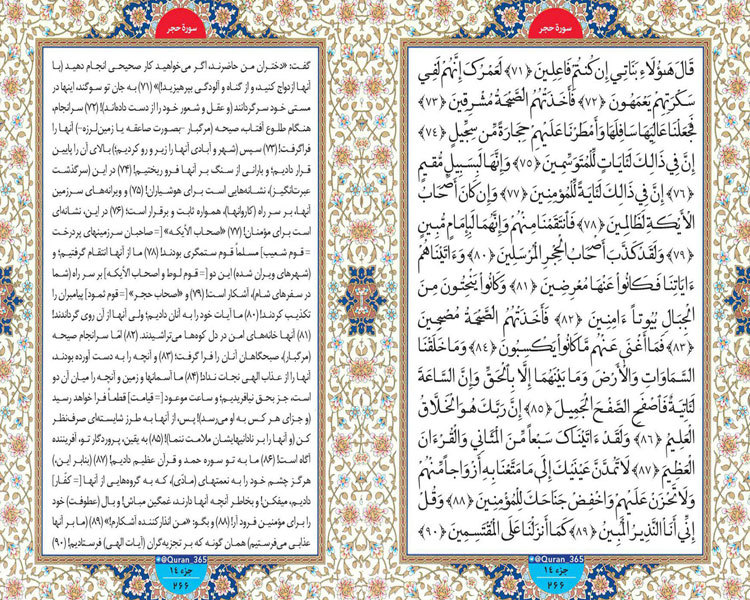 سورهٔ حجر
قَالَ هَـٰؤُلَاءِ بَنَاتِي إِن كُنتُمْ فَاعِلِينَ ﴿٧١﴾ لَعَمْرُكَ إِنَّهُمْ لَفِي
سَكْرَتِهِمْ يَعْمَهُونَ ﴿٧٢﴾ فَأَخَذَتْهُمُ الصَّيْحَةُ مُشْرِقِينَ ﴿٧٣﴾
فَجَعَلْنَا عَالِيَهَا سَافِلَهَا وَأَمْطَرْنَا عَلَيْهِمْ حِجَارَةً مِّن سِجِّيلٍ ﴿٧٤﴾
إِنَّ فِي ذَالِكَ لَآيَاتٍ لِّلْمُتَوَسِّمِينَ ﴿٧٥﴾ وَإِنَّهَا لَبِسَبِيلٍ مُّقِيمٍ
﴿٧٦﴾ إِنَّ فِي ذَالِكَ لَآيَةً لِّلْمُؤْمِنِينَ ﴿٧٧﴾ وَإِن كَانَ أَصْحَابُ
الْأَيْكَةِ لَظَالِمِينَ ﴿٧٨﴾ فَانتَقَمْنَا مِنْهُمْ وَإِنَّهُمَا لَبِإِمَامٍ مُّبِينٍ
﴿٧٩﴾ وَلَقَدْ كَذَّبَ أَصْحَابُ الْحِجْرِ الْمُرْسَلِينَ ﴿٨٠﴾ وَءَاتَيْنَاهُمْ
ءَايَاتِنَا فَكَانُوا عَنْهَا مُعْرِضِينَ ﴿٨١﴾ وَكَانُوا يَنْحِتُونَ مِنَ
الْجِبَالِ بُيُوتًا ءَامِنِينَ ﴿٨٢﴾ فَأَخَذَتْهُمُ الصَّيْحَةُ مُصْبِحِينَ
﴿٨٣﴾ فَمَا أَغْنَى عَنْهُم مَّا كَانُوا يَكْسِبُونَ ﴿٨٤﴾ وَمَا خَلَقْنَا
السَّمَاوَاتِ وَالْأَرْضَ وَمَا بَيْنَهُمَا إِلَّا بِالْحَقِّ وَإِنَّ السَّاعَةَ
لَآتِيَةٌ فَاصْفَحِ الصَّفْحَ الْجَمِيلَ ﴿٨٥﴾ إِنَّ رَبَّكَ هُوَ الْخَلَّاقُ
الْعَلِيمُ ﴿٨٦﴾ وَلَقَدْ ءَاتَيْنَاكَ سَبْعًا مِّنَ الْمَثَانِي وَالْقُرْءَانَ
الْعَظِيمَ ﴿٨٧﴾ لَا تَمُدَّنَّ عَيْنَيْكَ إِلَى مَا مَتَّعْنَا بِهِ أَزْوَاجًا مِّنْهُمْ
وَلَا تَحْزَنْ عَلَيْهِمْ وَاخْفِضْ جَنَاحَكَ لِلْمُؤْمِنِينَ ﴿٨٨﴾ وَقُلْ
إِنِّي أَنَا النَّذِيرُ الْمُبِينُ ﴿٨٩﴾ كَمَا أَنزَلْنَا عَلَى الْمُقْتَسِمِينَ ﴿٩٠﴾
@Quran_365
جزء ١٤
٢٦٦
سورهٔ حجر
گفت: «دختران من حاضرند، اگر می‌خواهید کار صحیحی انجام دهید (با
آنها ازدواج کنید، و از گناه و آلودگی بپرهیزید!)» (۷۱) به جان تو سوگند، اینها در
مستی خود سرگردانند (و عقل و شعور خود را از دست داده‌اند)! (۷۲) سرانجام،
هنگام طلوع آفتاب، صیحه (مرگبار -بصورت صاعقه یا زمین‌لرزه-) آنها را
فراگرفت! (۷۳) سپس (شهر و آبادی آنها را زیر و رو کردیم؛) بالای آن را پایین
قرار دادیم؛ و بارانی از سنگ بر آنها فرو ریختیم! (۷۴) در این (سرگذشت
عبرت‌انگیز)، نشانه‌هایی است برای هوشیاران! (۷۵) و ویرانه‌های سرزمین
آنها، بر سر راه (کاروانها)، همواره ثابت و برقرار است؛ (۷۶) در این، نشانه‌ای
است برای مؤمنان! (۷۷) «اصحاب الأیکه» [= صاحبان سرزمینهای پردرخت
= قوم شعیب] مسلماً قوم ستمگری بودند! (۷۸) ما از آنها انتقام گرفتیم؛ و
(شهرهای ویران شده) این دو [= قوم لوط و اصحاب الأیکه] بر سر راه (شما
در سفرهای شام)، آشکار است! (۷۹) و «اصحاب حجر» [= قوم ثمود] پیامبران را
تکذیب کردند! (۸۰) ما آیات خود را به آنان دادیم؛ ولی آنها از آن روی گرداندند!
(۸۱) آنها خانه‌های امن در دل کوه‌ها می‌تراشیدند. (۸۲) امّا سرانجام صیحه
(مرگبار)، صبحگاهان آنان را فرا گرفت؛ (۸۳) و آنچه را به دست آورده بودند،
آنها را از عذاب الهی نجات نداد! (۸۴) ما آسمانها و زمین و آنچه را میان آن دو
است، جز بحق نیافریدیم؛ و ساعت موعود [= قیامت] قطعاً فرا خواهد رسید
(و جزای هر کس به او می‌رسد)! پس، از آنها به طرز شایسته‌ای صرف‌نظر
کن (و آنها را بر نادانیهایشان ملامت ننما)! (۸۵) به یقین، پروردگار تو، آفریننده
آگاه است! (۸۶) ما به تو سوره حمد و قرآن عظیم دادیم! (۸۷) (بنابر این،)
هرگز چشم خود را به نعمتهای (مادّی)، که به گروه‌هایی از آنها [= کفّار]
دادیم، میفکن! و بخاطر آنچه آنها دارند، غمگین مباش! و بال (عطوفت) خود
را برای مؤمنین فرود آر! (۸۸) و بگو: «من انذارکننده آشکارم!» (۸۹) (ما بر آنها
عذابی می‌فرستیم) همان گونه که بر تجزیه‌گران (آیات الهی) فرستادیم! (۹۰)
@Quran_365
جزء ١٤
٢٦٦